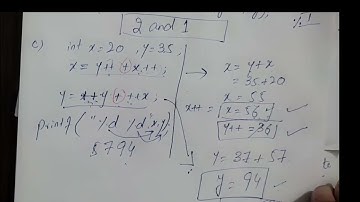 2 and 1
c) int x=20, y=35;
x = y++ + x++;
y = ++y + ++x;
printf("%d %d", x, y);
5794
x = y+x
= 35+20
x = 55
x++ = x=56
y++ = 36
y = 37+57
y = 94